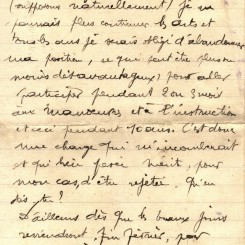 (supposons naturellement) je ne
pourrais plus continuer les arts et
tous les ans je serais obligé d'abandonner
ma position, ce qui peut être plus ou
moins désavantageux) pour aller
participer pendant 2 ou 3 mois
aux manœuvres et à l'instruction
et ceci pendant 10 ans. C'est donc
une charge qui m'incomberait
et qui bien pesée mérite, pour
mon cas, d'être rejetée. Qu'en
dis tu ?
D'ailleurs dès que les beaux jours
reviendront, fin février, par